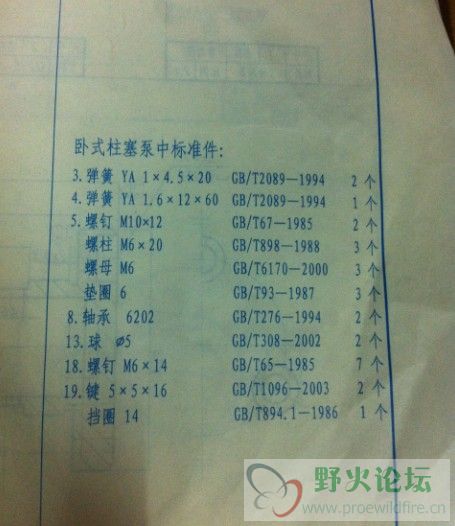 卧式柱塞泵中标准件:
3.弹簧 YA 1×4.5×20 GB/T2089—1994 2个
4.弹簧 YA 1.6×12×60 GB/T2089—1994 1个
5.螺钉 M10×12 GB/T67—1985 2个
螺柱 M6×20 GB/T898—1988 3个
螺母 M6 GB/T6170—2000 3个
垫圈 6 GB/T93—1987 3个
8.轴承 6202 GB/T276—1994 2个
13.球 ø5 GB/T308—2002 2个
18.螺钉 M6×14 GB/T65—1985 7个
19.键 5×5×16 GB/T1096—2003 2个
挡圈 14 GB/T894.1—1986 1个
野火论坛
www.proewildfire.cn